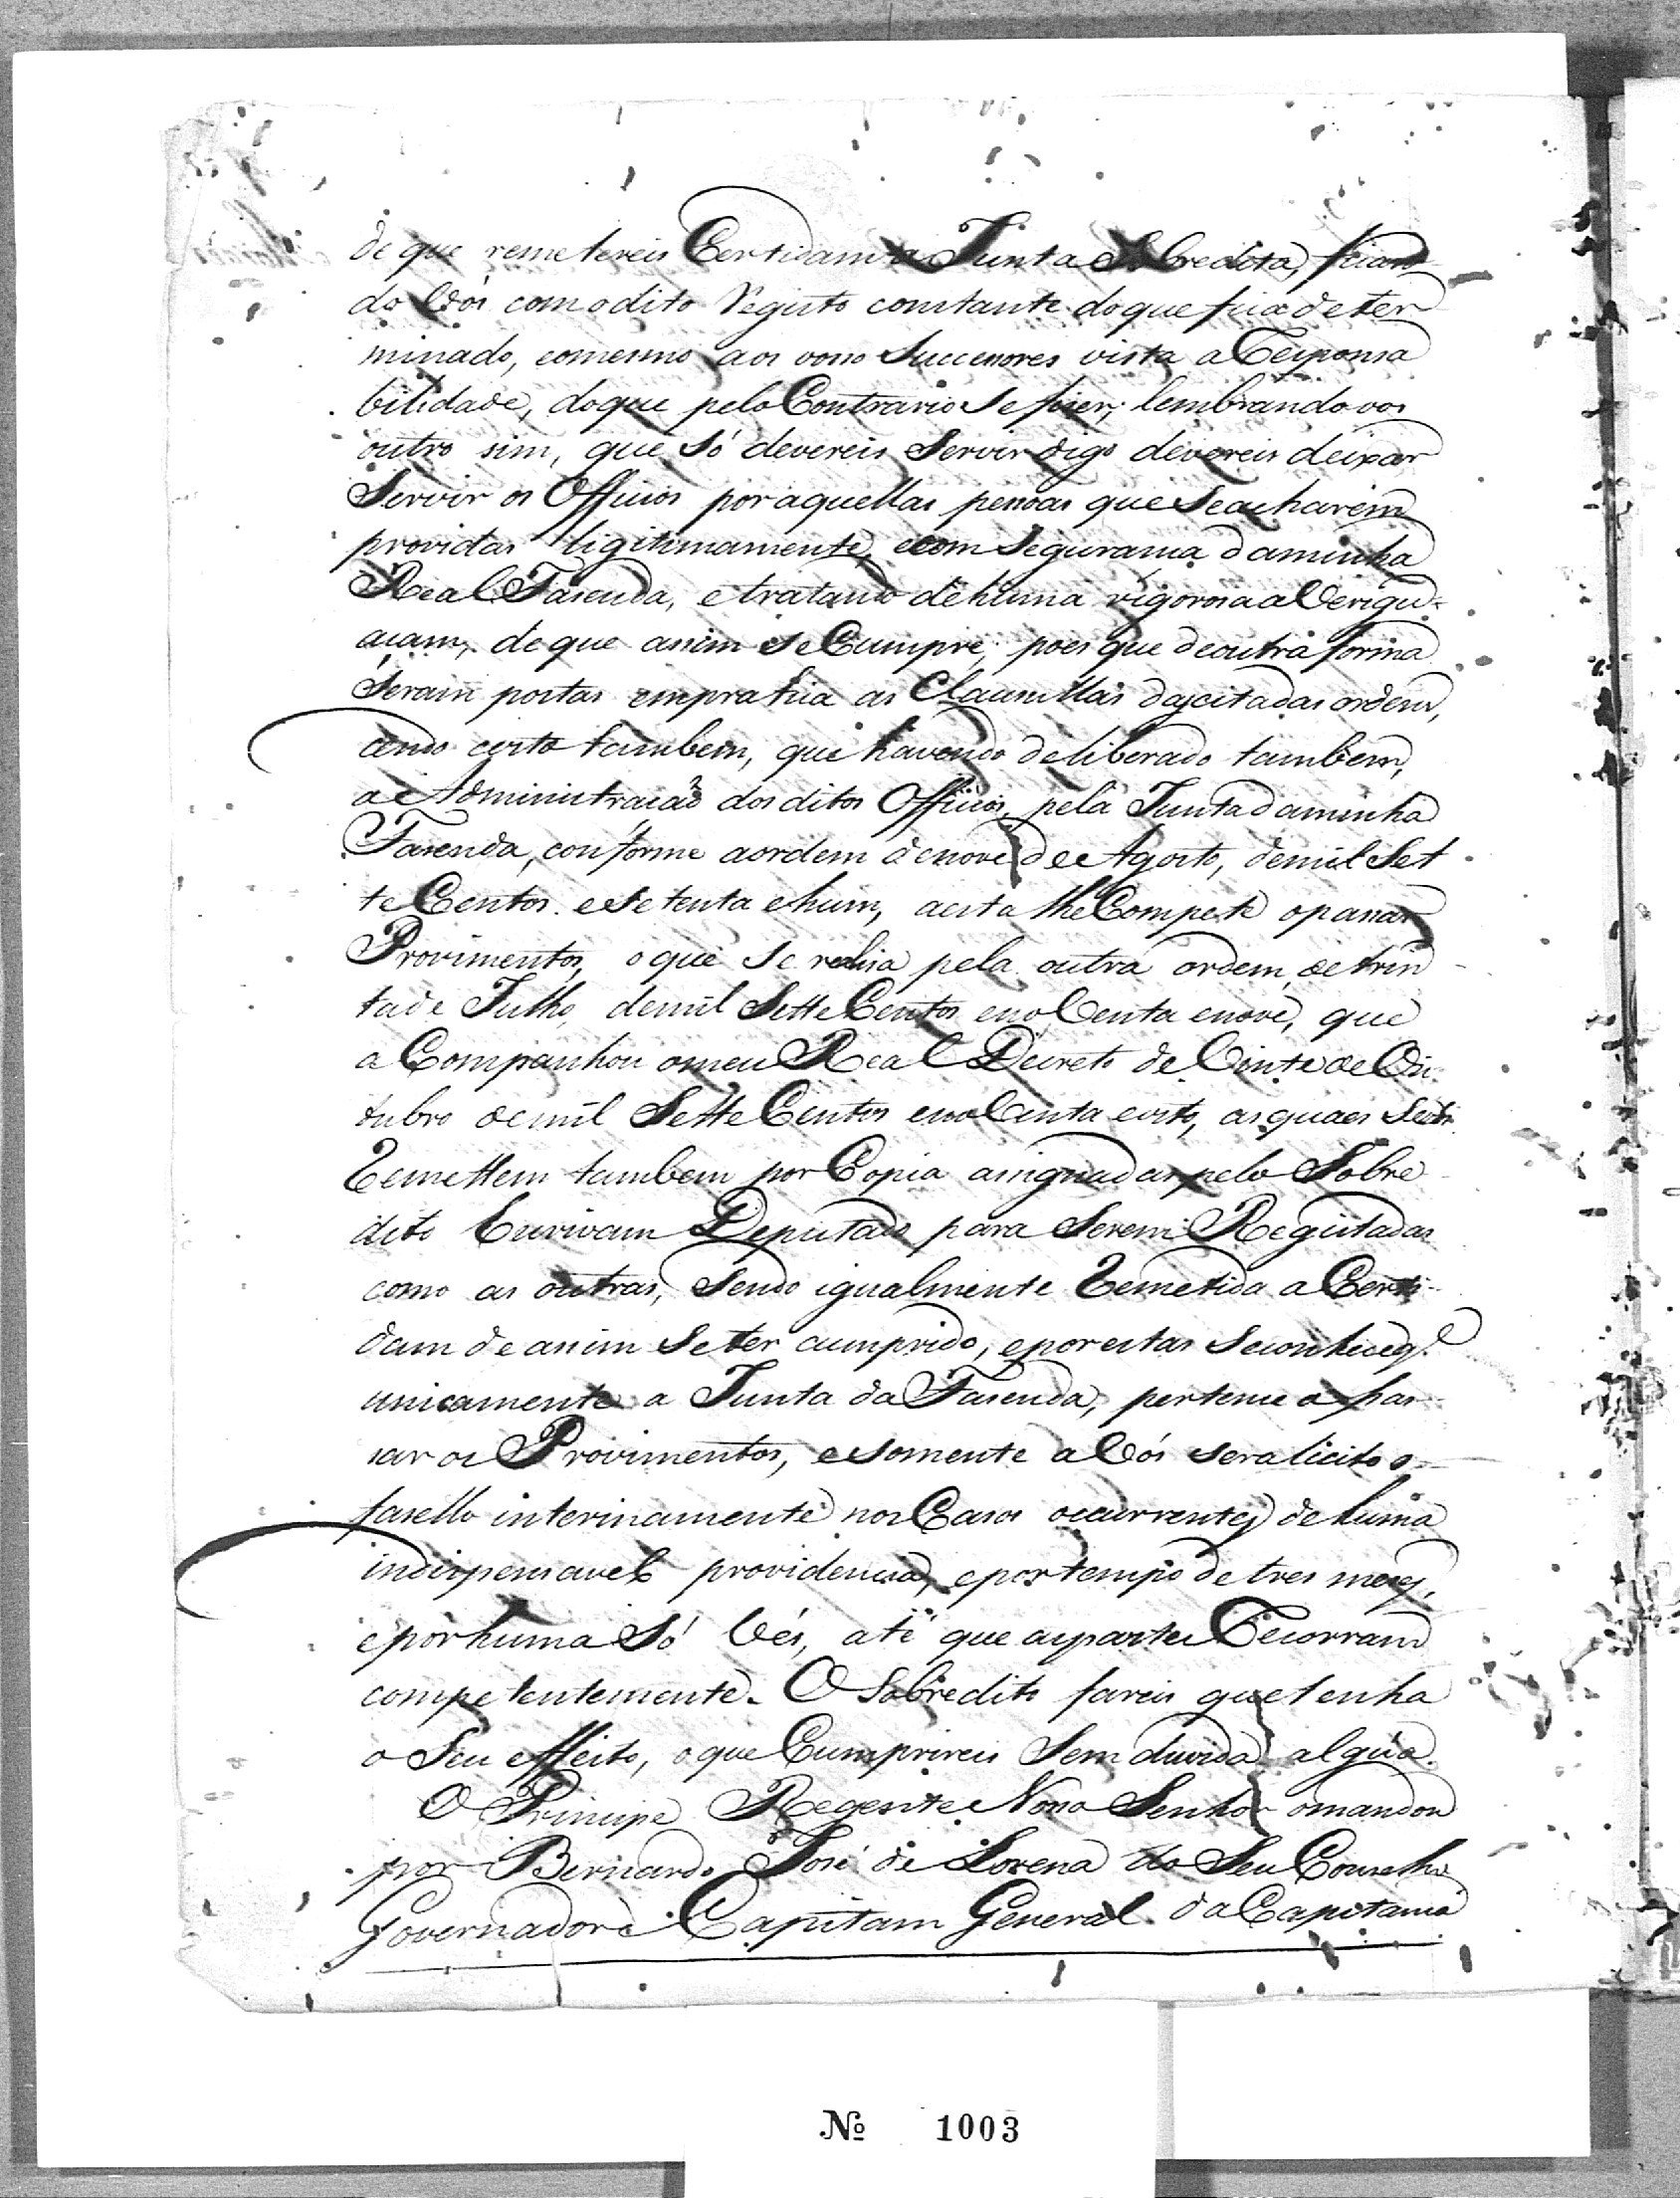 de que remetereis Certidam a Junta Sobredita, fican
do Vós com o dito Registo constante do que fica deter
minado, e o mesmo aos vosso Successores vista a Responsa
bilidade, do que pelo Contrario Se fizer; lembrando vos
outro sim, que Só devereis Servir digo devereis deixar
Servir os Officios por aquellas pessoas que Se acharem
providas ligitimamente, e com Seguransa da minha
Real Fasenda, e tratando de huma rigorosa a Verigu
acam, de que assim Se Cumpre, poes que de outra forma
Seram postas em pratica as Clausullas das citadas ordens,
cendo certo tambem, que havendo deliberado tambem,
a Administracaõ dos ditos Officios, pela Junta da minha
Fasenda, conforme a ordem de nove de Agosto, de mil Set
te Centos e Setenta e hum, a esta lhe Compete o pasar
Provimentos, o que Se realisa pela outra ordem de trin
ta de Julho, de mil Sette Centos e noVenta e nove, que
a Companhou o meu Real Decreto de Vinte de Ou
tubro de mil Sette Centos e noVenta e oito, as quaes Se
Remettem tambem por Copia assignadas pelo Sobre
dito Escrivam Deputado para Serem Registadas
como as outras, Sendo igualmente Remetida a Certi
dam de assim Se ter cumprido, e por estas Se conhece q.e
unicamente a Junta da Fasenda, pertence o pas
sar os Provimentos, e somente a Vós sera licito o
fasello interinamente nos Casos occurrentes de huma
indispensavel providencia, e por tempo de tres meses,
e por huma Só Vés, até que as partes Recorram
competentemente. O Sobredito fareis que tenha
o Seu effeito, o que Cumprireis Sem duvida algúa.
O Principe Regente Nosso Senhor o mandou
por Bernardo José de Lorena do Seu Conselho
Governador e Capitam General da Capitania
Nº 1003